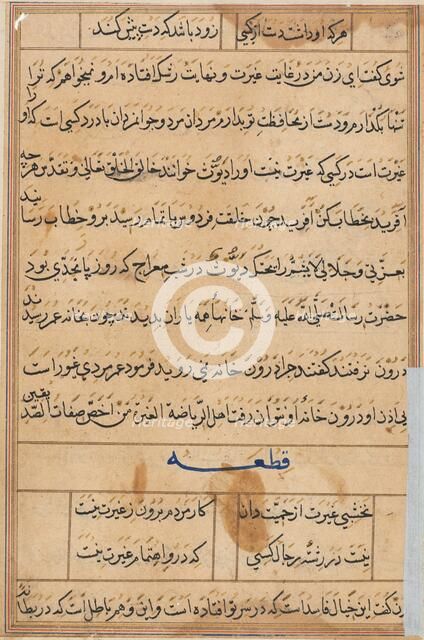 هر که او را نتند دست از کسی زود باشد که دست پیش کند
شوی گفت ای زن من در غایت غیرت و نهایت رشک افتاده‌ام و نمیخواهم که ترا
تنها بگذارم و دست از محافظت تو بدارم مردان مرد و جوانمردان با درد کسی است که او را
غیرت است در کسی که غیرت نیست او را دیوث خوانند خالق الخلق تعالی و تقدس هر چه
آفرید بخطاب کن آفرید چون خلقت فردوس باتمام رسید برو خطاب رسانید
بعزتی و جلالی لا یشم رایحتک دیوث در شب معراج که روز باتحدی بود
حضرت رسالت صلی الله علیه و سلم خانهاء همه یاران بدید چون بخانه عمر رسید
درون نرفت گفتند چرا درون خانه نمی‌روید فرمود عمر مردی غیور است
بی اذن او درون خانه او نتوان رفت اهل الریاضه الغیرة من اخص صفات الصدیقین
قطعه
نخشبی غیرت از حمیت دان کار مردم برون ز غیرت نیست
نیست در رشته رجال کسی که درو اهتمام غیرت نیست
زن گفت این خیال فاسد است که در سر تو افتاده است و این وهم باطل است که در بطانه
heritage